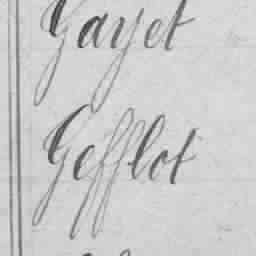 Gayet
Gefflot